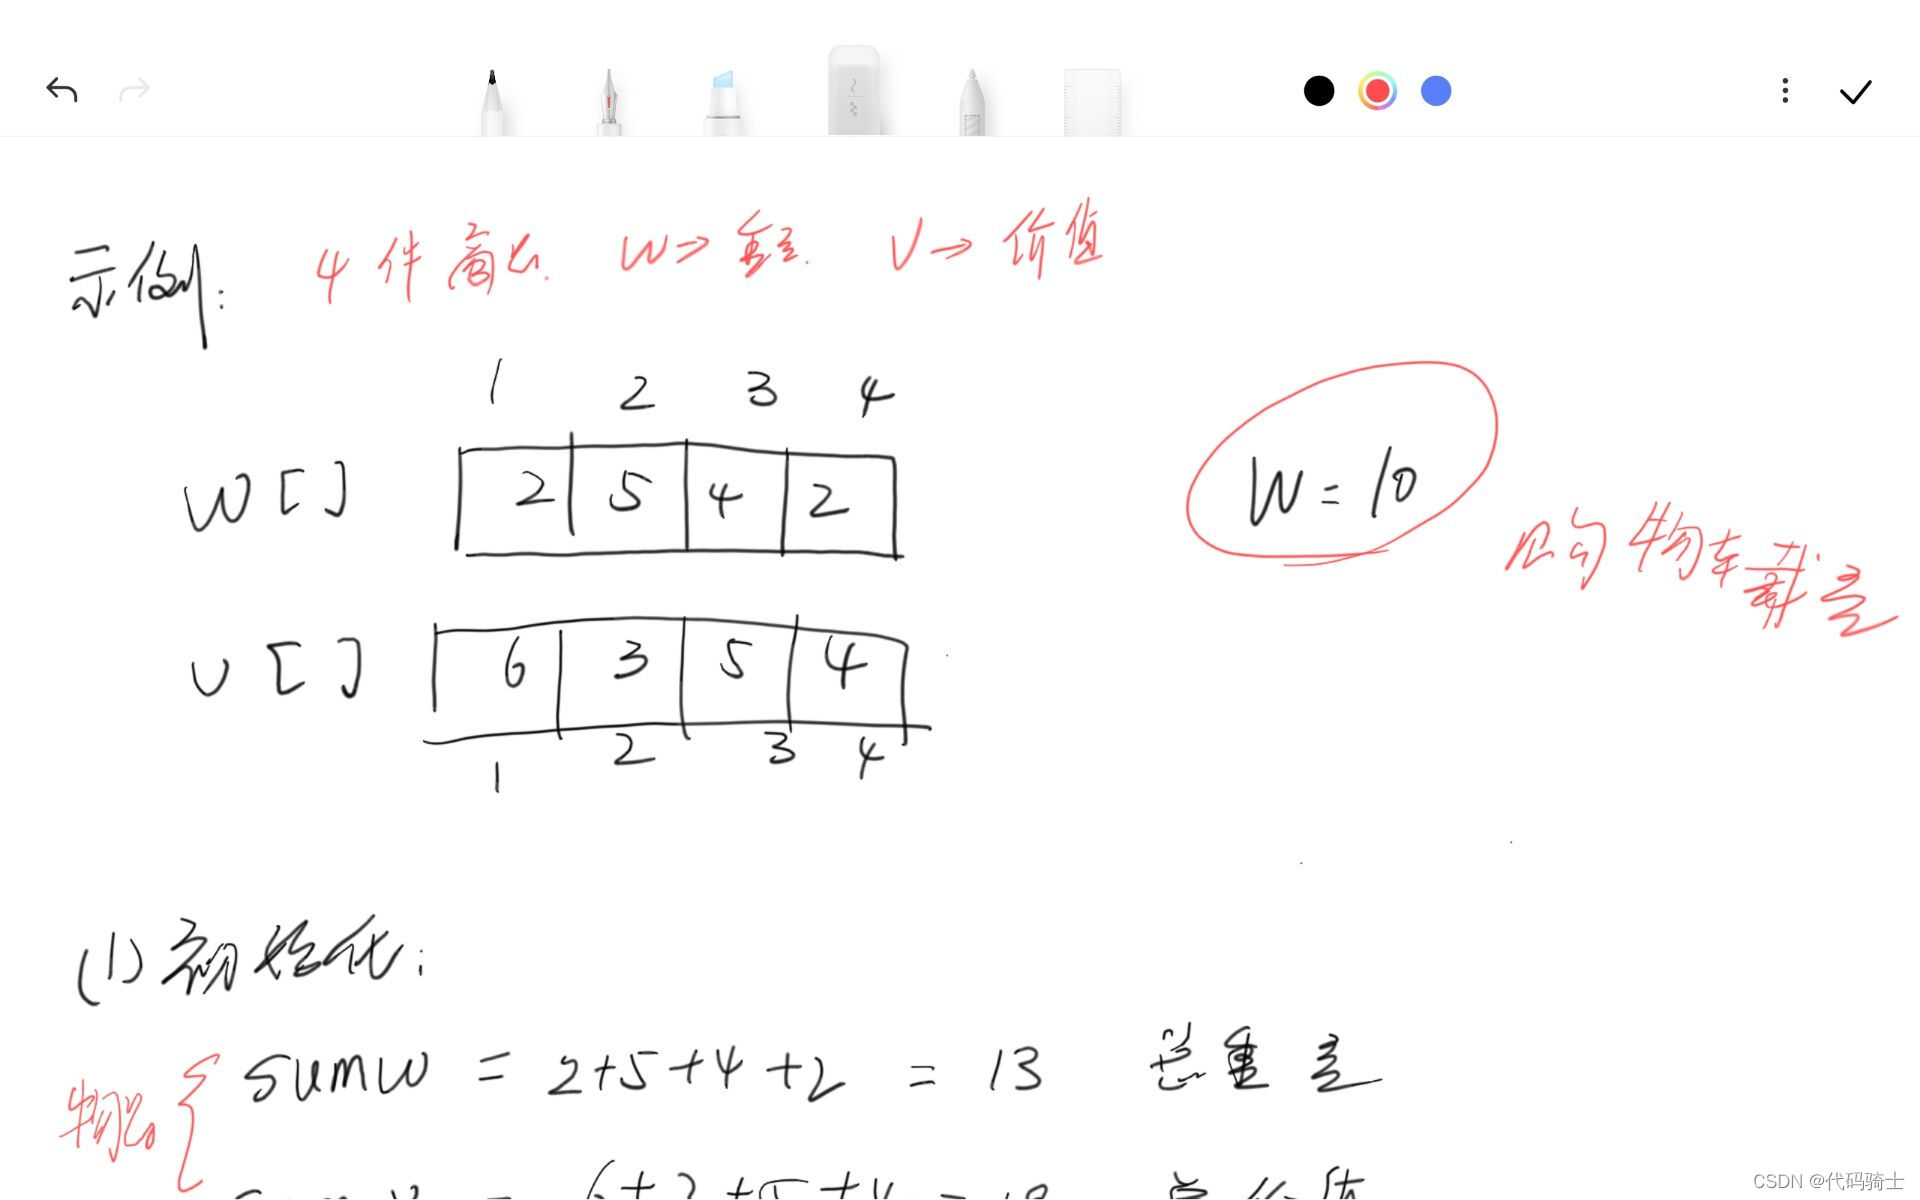 示例: 4件商品. W→重量. V→价值
1 2 3 4
W [ ] 2 5 4 2
W = 10
购物车载重量
V [ ] 6 3 5 4
1 2 3 4
(1) 初始化:
物品 { sumw = 2+5+4+2 = 13 总重量
sumv = 6+3+5+4 = 18 总价值
CSDN @代码骑士